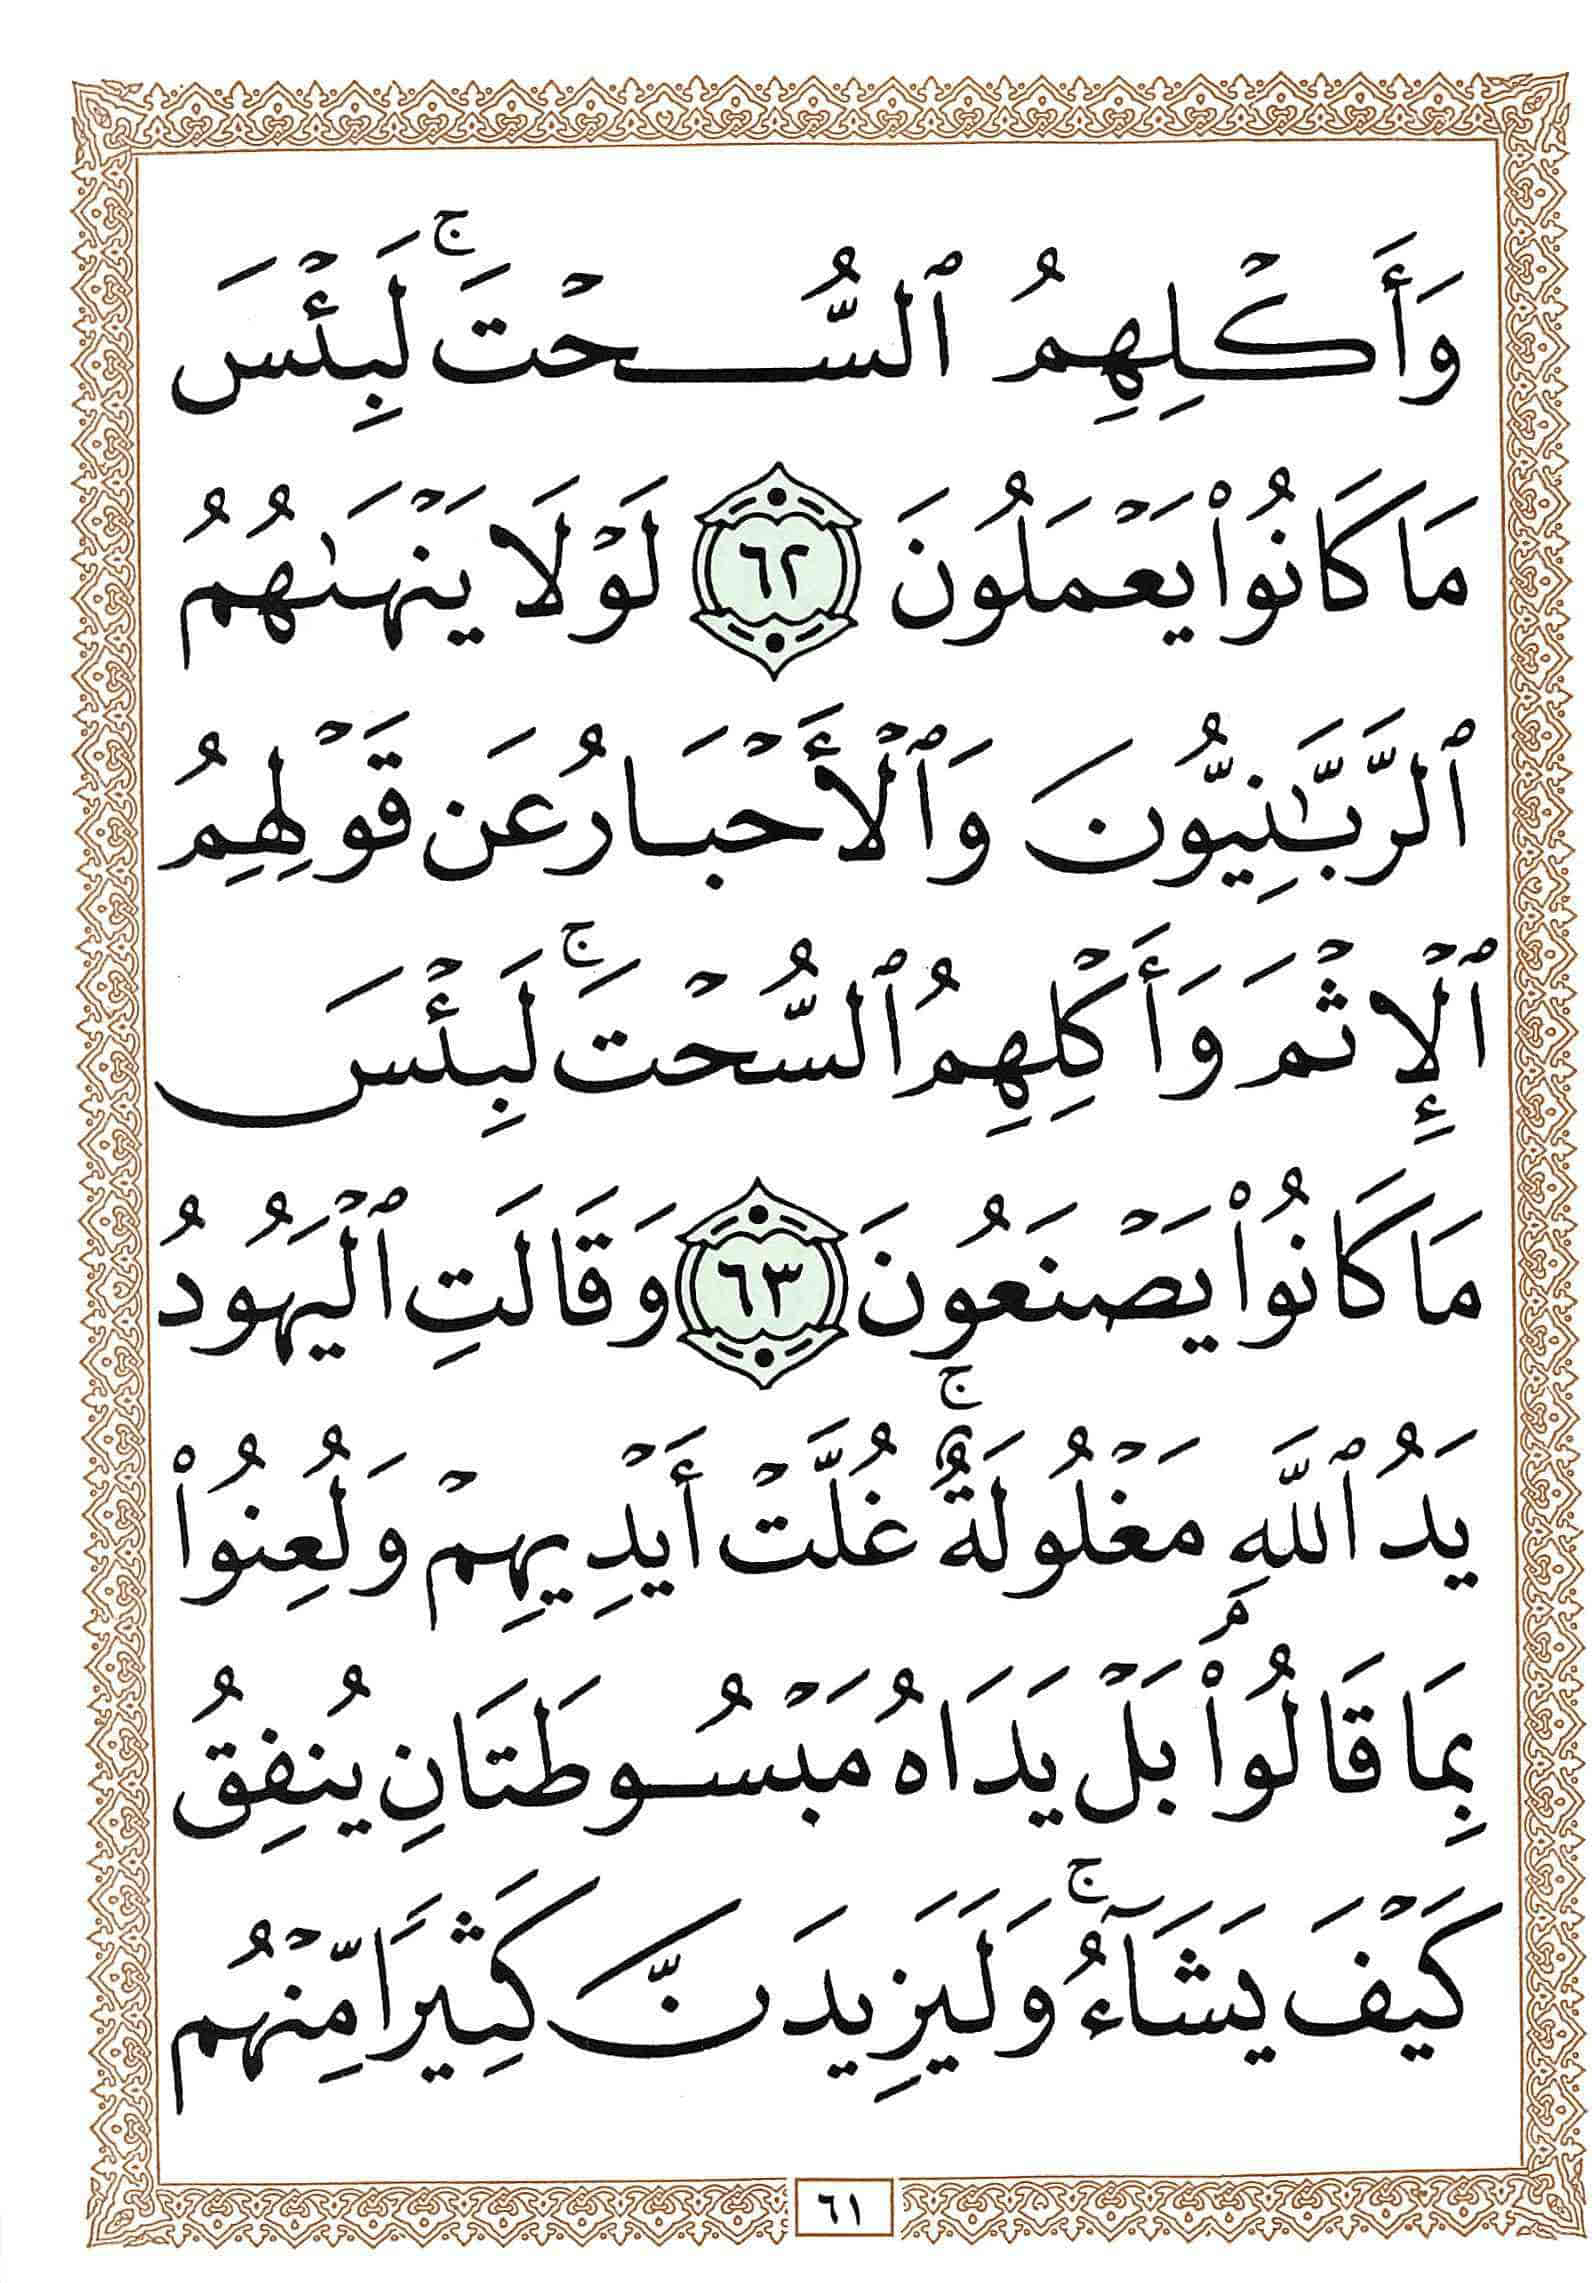 وَأَكۡلِهِمُ ٱلسُّحۡتَۚ لَبِئۡسَ
مَا كَانُواْ يَعۡمَلُونَ ٦٢ لَوۡلَا يَنۡهَىٰهُمُ
ٱلرَّبَّٰنِيُّونَ وَٱلۡأَحۡبَارُ عَن قَوۡلِهِمُ
ٱلۡإِثۡمَ وَأَكۡلِهِمُ ٱلسُّحۡتَۚ لَبِئۡسَ
مَا كَانُواْ يَصۡنَعُونَ ٦٣ وَقَالَتِ ٱلۡيَهُودُ
يَدُ ٱللَّهِ مَغۡلُولَةٌۚ غُلَّتۡ أَيۡدِيهِمۡ وَلُعِنُواْ
بِمَا قَالُواْۘ بَلۡ يَدَاهُ مَبۡسُوطَتَانِ يُنفِقُ
كَيۡفَ يَشَآءُۚ وَلَيَزِيدَنَّ كَثِيرٗا مِّنۡهُم
٦١